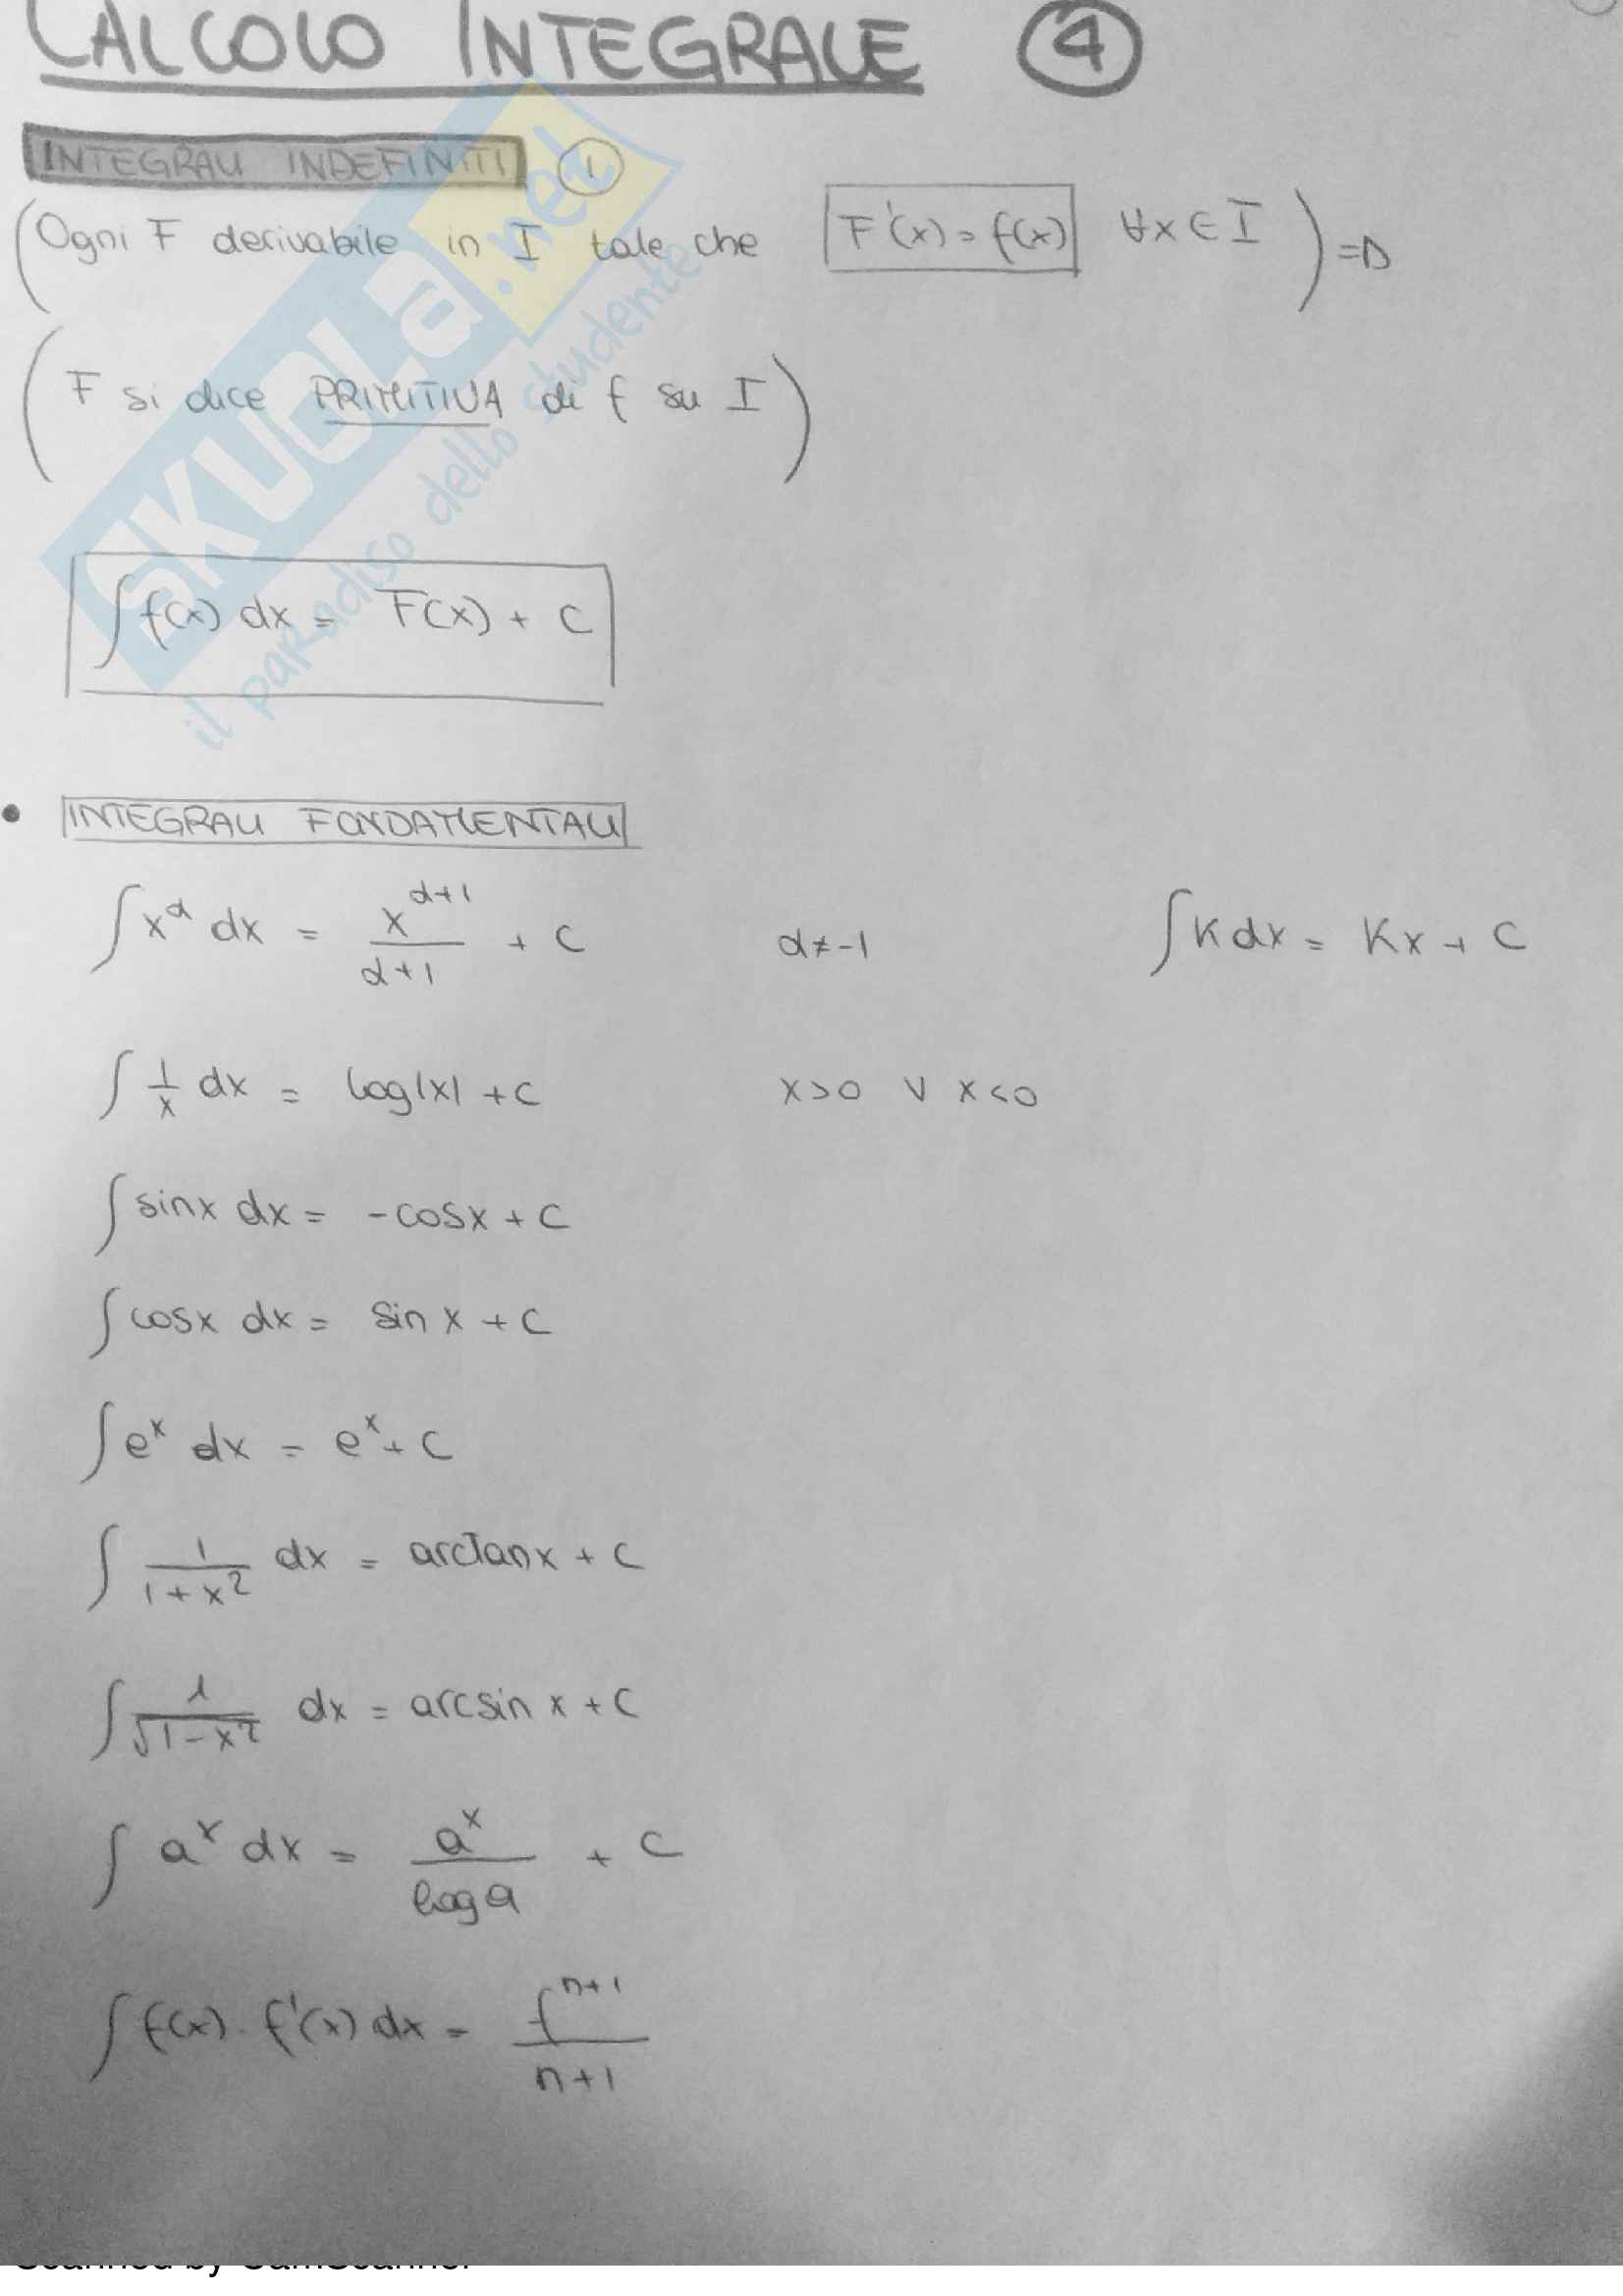 CALCOLO INTEGRALE 4
INTEGRALI INDEFINITI 1
(Ogni F derivabile in I tale che F'(x) = f(x) ∀x ∈ I) =D
(F si dice PRIMITIVA di f su I)
SKUOLA.net
il paradiso dello studente
∫ f(x) dx = F(x) + C
• INTEGRALI FONDAMENTALI
∫ x^α dx = x^(α+1) / (α+1) + C α ≠ -1 ∫ K dx = Kx + C
∫ 1/x dx = log|x| + C x>0 ∨ x<0
∫ sinx dx = -cosx + C
∫ cosx dx = sin x + C
∫ e^x dx = e^x + C
∫ 1/(1+x²) dx = arctanx + C
∫ 1/√(1-x²) dx = arcsin x + C
∫ a^x dx = a^x / log a + C
∫ f(x) · f'(x) dx = f^(n+1) / (n+1)
Scanned by CamScanner